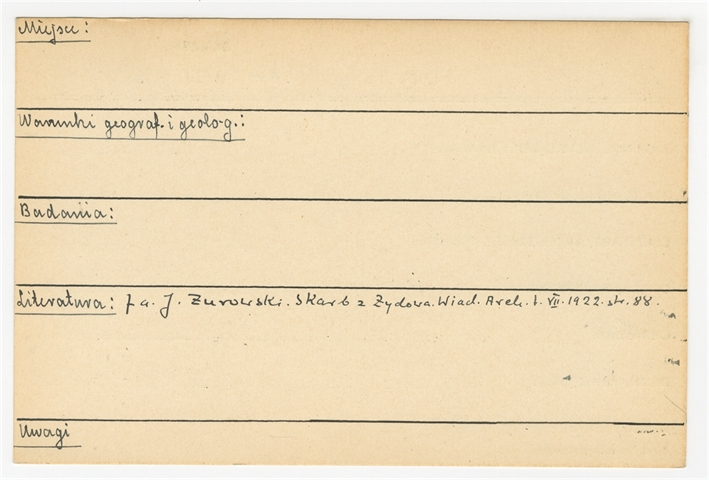 Miejsce:
Warunki geograf. i geolog.:
Badania:
Literatura: J. Żurowski. Skarb z Żydowa. Wiad. Arch. t. VII. 1922. str. 88.
Uwagi